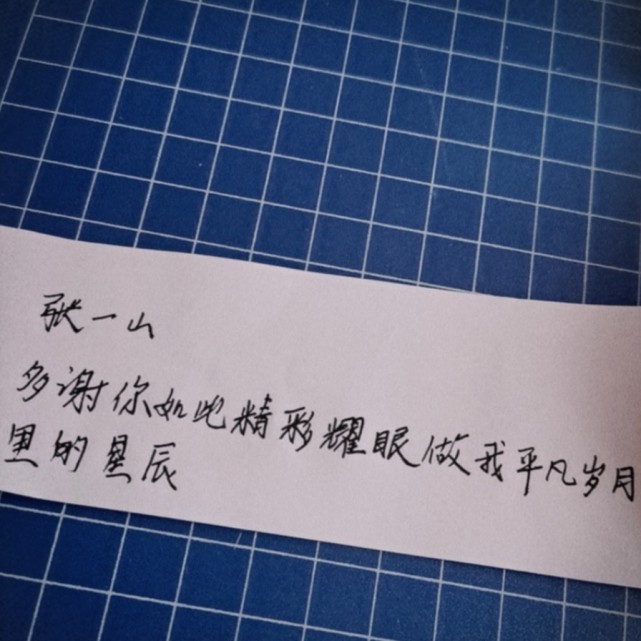 张一山
多谢你如此精彩耀眼做我平凡岁月
里的星辰